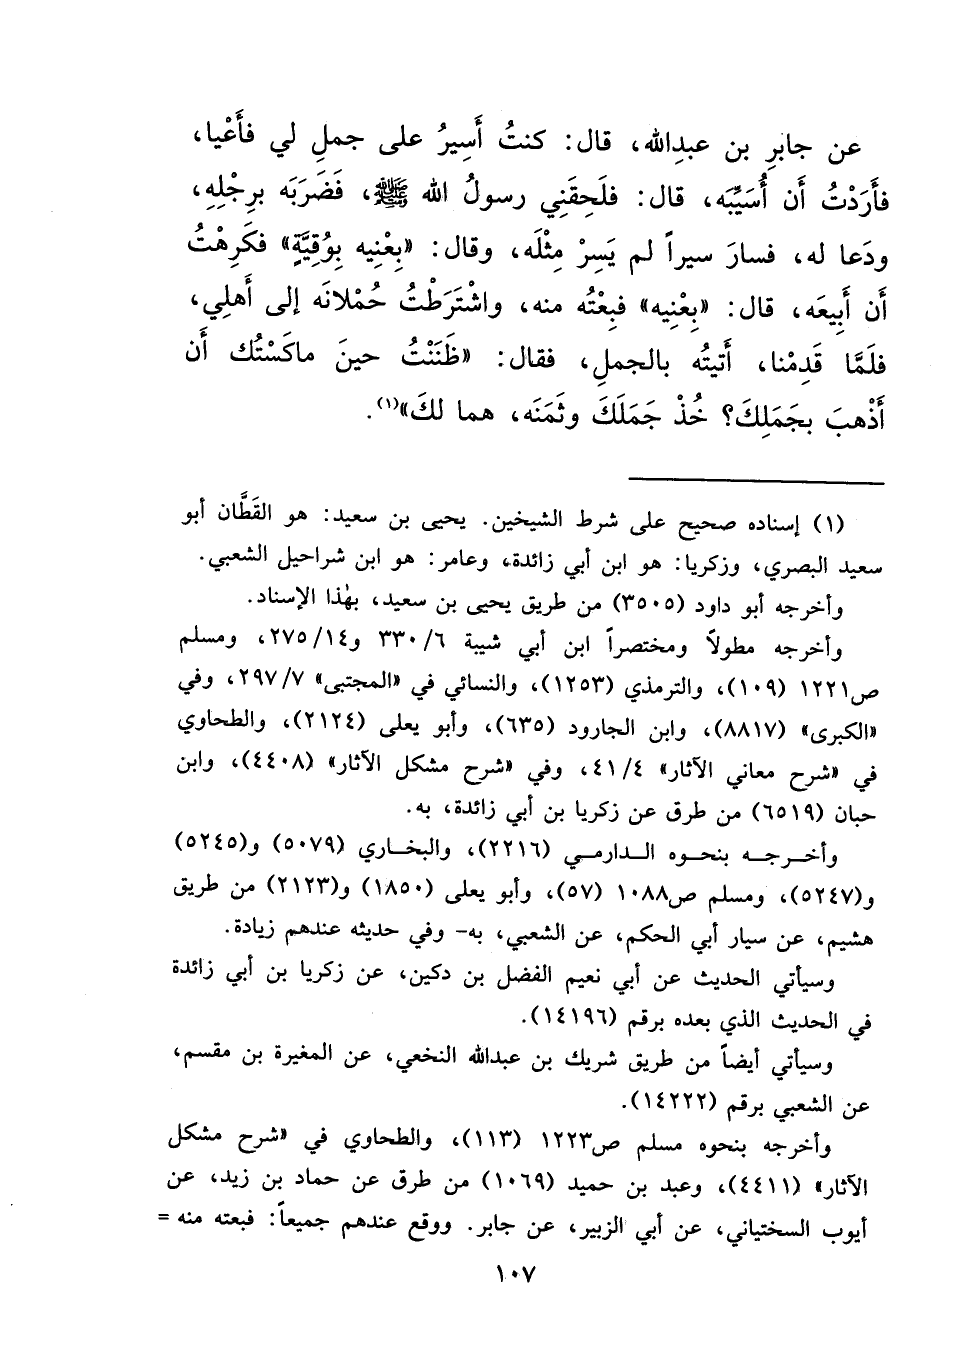 عن جابرِ بن عبدِالله، قال: كنتُ أَسِيرُ على جملٍ لي فأَعْيا،
فأَرَدْتُ أن أُسَيِّبَه، قال: فلَحِقَنِي رسولُ الله ﷺ، فَضَرَبَه برِجْلِهِ،
ودَعا له، فسارَ سيراً لم يَسِرْ مِثْلَه، وقال: «بِعْنِيه بِوُقِيَّةٍ» فكَرِهْتُ
أن أَبِيعَه، قال: «بِعْنِيه» فبِعْتُه منه، واشْتَرَطْتُ حُمْلانَه إلى أَهلِي،
فلَمَّا قَدِمْنا، أَتيتُه بالجملِ، فقال: «ظَنَنْتُ حينَ ماكَسْتُك أَن
أَذْهبَ بجَمَلِكَ؟ خُذْ جَمَلَكَ وثَمَنَه، هما لكَ»(١).
(١) إسناده صحيح على شرط الشيخين. يحيى بن سعيد: هو القَطَّان أبو
سعيد البصري، وزكريا: هو ابن أبي زائدة، وعامر: هو ابن شراحيل الشعبي.
وأخرجه أبو داود (٣٥٠٥) من طريق يحيى بن سعيد، بهٰذا الإسناد.
وأخرجه مطولاً ومختصراً ابن أبي شيبة ٣٣٠/٦ و٢٧٥/١٤، ومسلم
ص١٢٢١ (١٠٩)، والترمذي (١٢٥٣)، والنسائي في «المجتبى» ٢٩٧/٧، وفي
«الكبرى» (٨٨١٧)، وابن الجارود (٦٣٥)، وأبو يعلى (٢١٢٤)، والطحاوي
في «شرح معاني الآثار» ٤١/٤، وفي «شرح مشكل الآثار» (٤٤٠٨)، وابن
حبان (٦٥١٩) من طرق عن زكريا بن أبي زائدة، به.
وأخرجه بنحوه الدارمي (٢٢١٦)، والبخاري (٥٠٧٩) و(٥٢٤٥)
و(٥٢٤٧)، ومسلم ص١٠٨٨ (٥٧)، وأبو يعلى (١٨٥٠) و(٢١٢٣) من طريق
هشيم، عن سيار أبي الحكم، عن الشعبي، به- وفي حديثه عندهم زيادة.
وسيأتي الحديث عن أبي نعيم الفضل بن دكين، عن زكريا بن أبي زائدة
في الحديث الذي بعده برقم (١٤١٩٦).
وسيأتي أيضاً من طريق شريك بن عبدالله النخعي، عن المغيرة بن مقسم،
عن الشعبي برقم (١٤٢٢٢).
وأخرجه بنحوه مسلم ص١٢٢٣ (١١٣)، والطحاوي في «شرح مشكل
الآثار» (٤٤١١)، وعبد بن حميد (١٠٦٩) من طرق عن حماد بن زيد، عن
أيوب السختياني، عن أبي الزبير، عن جابر. ووقع عندهم جميعاً: فبعته منه =
١٠٧